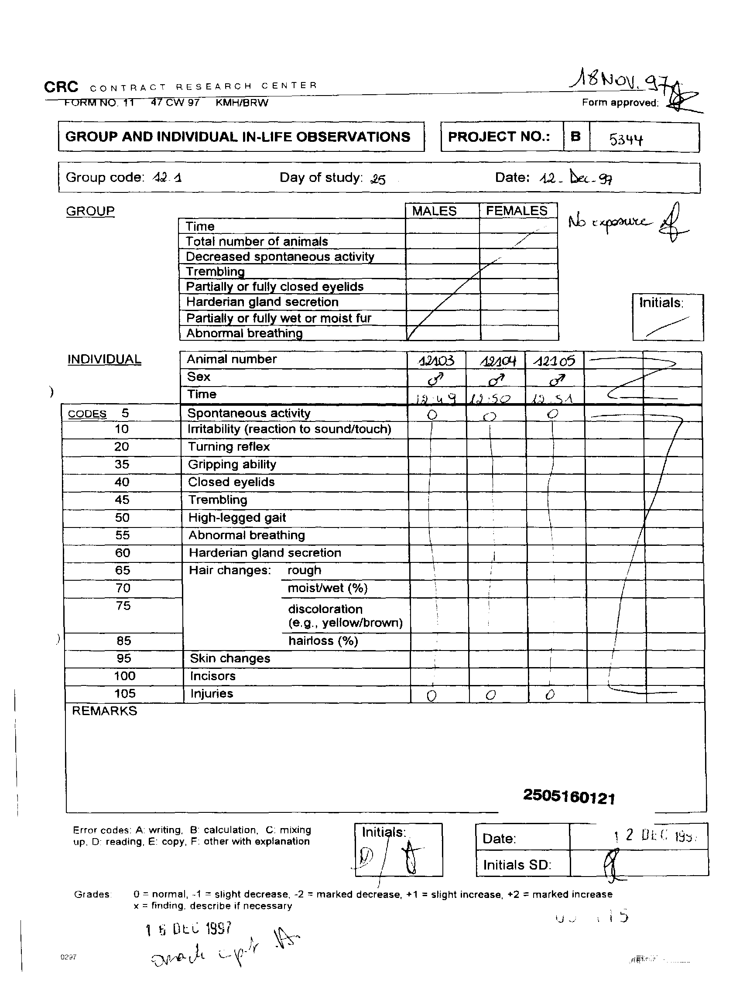 18 NOV. 97
CRC CONTRACT RESEARCH CENTER
FORM NO. 11 47 CW 97 KMH/BRW
Form approved:
GROUP AND INDIVIDUAL IN-LIFE OBSERVATIONS PROJECT NO.: B 5344
Group code: 12.1 Day of study: 25 Date: 12-Dec-97
GROUP MALES FEMALES
No exposure
Time
Total number of animals
Decreased spontaneous activity
Trembling
Partially or fully closed eyelids
Harderian gland secretion
Initials:
Partially or fully wet or moist fur
Abnormal breathing
INDIVIDUAL Animal number 12103 12104 12105
Sex ♂ ♂ ♂
Time 12.49 12.50 12.51
CODES 5 Spontaneous activity 0 0 0
10 Irritability (reaction to sound/touch)
20 Turning reflex
35 Gripping ability
40 Closed eyelids
45 Trembling
50 High-legged gait
55 Abnormal breathing
60 Harderian gland secretion
65 Hair changes: rough
70 moist/wet (%)
75 discoloration
(e.g., yellow/brown)
85 hairloss (%)
95 Skin changes
100 Incisors
105 Injuries 0 0 0
REMARKS
2505160121
Error codes: A: writing, B: calculation, C: mixing
up, D: reading, E: copy, F: other with explanation
Initials:
Date: 12 DEC 199
Initials SD:
Grades: 0 = normal, -1 = slight decrease, -2 = marked decrease, +1 = slight increase, +2 = marked increase
x = finding, describe if necessary
16 DEC 1997
0297